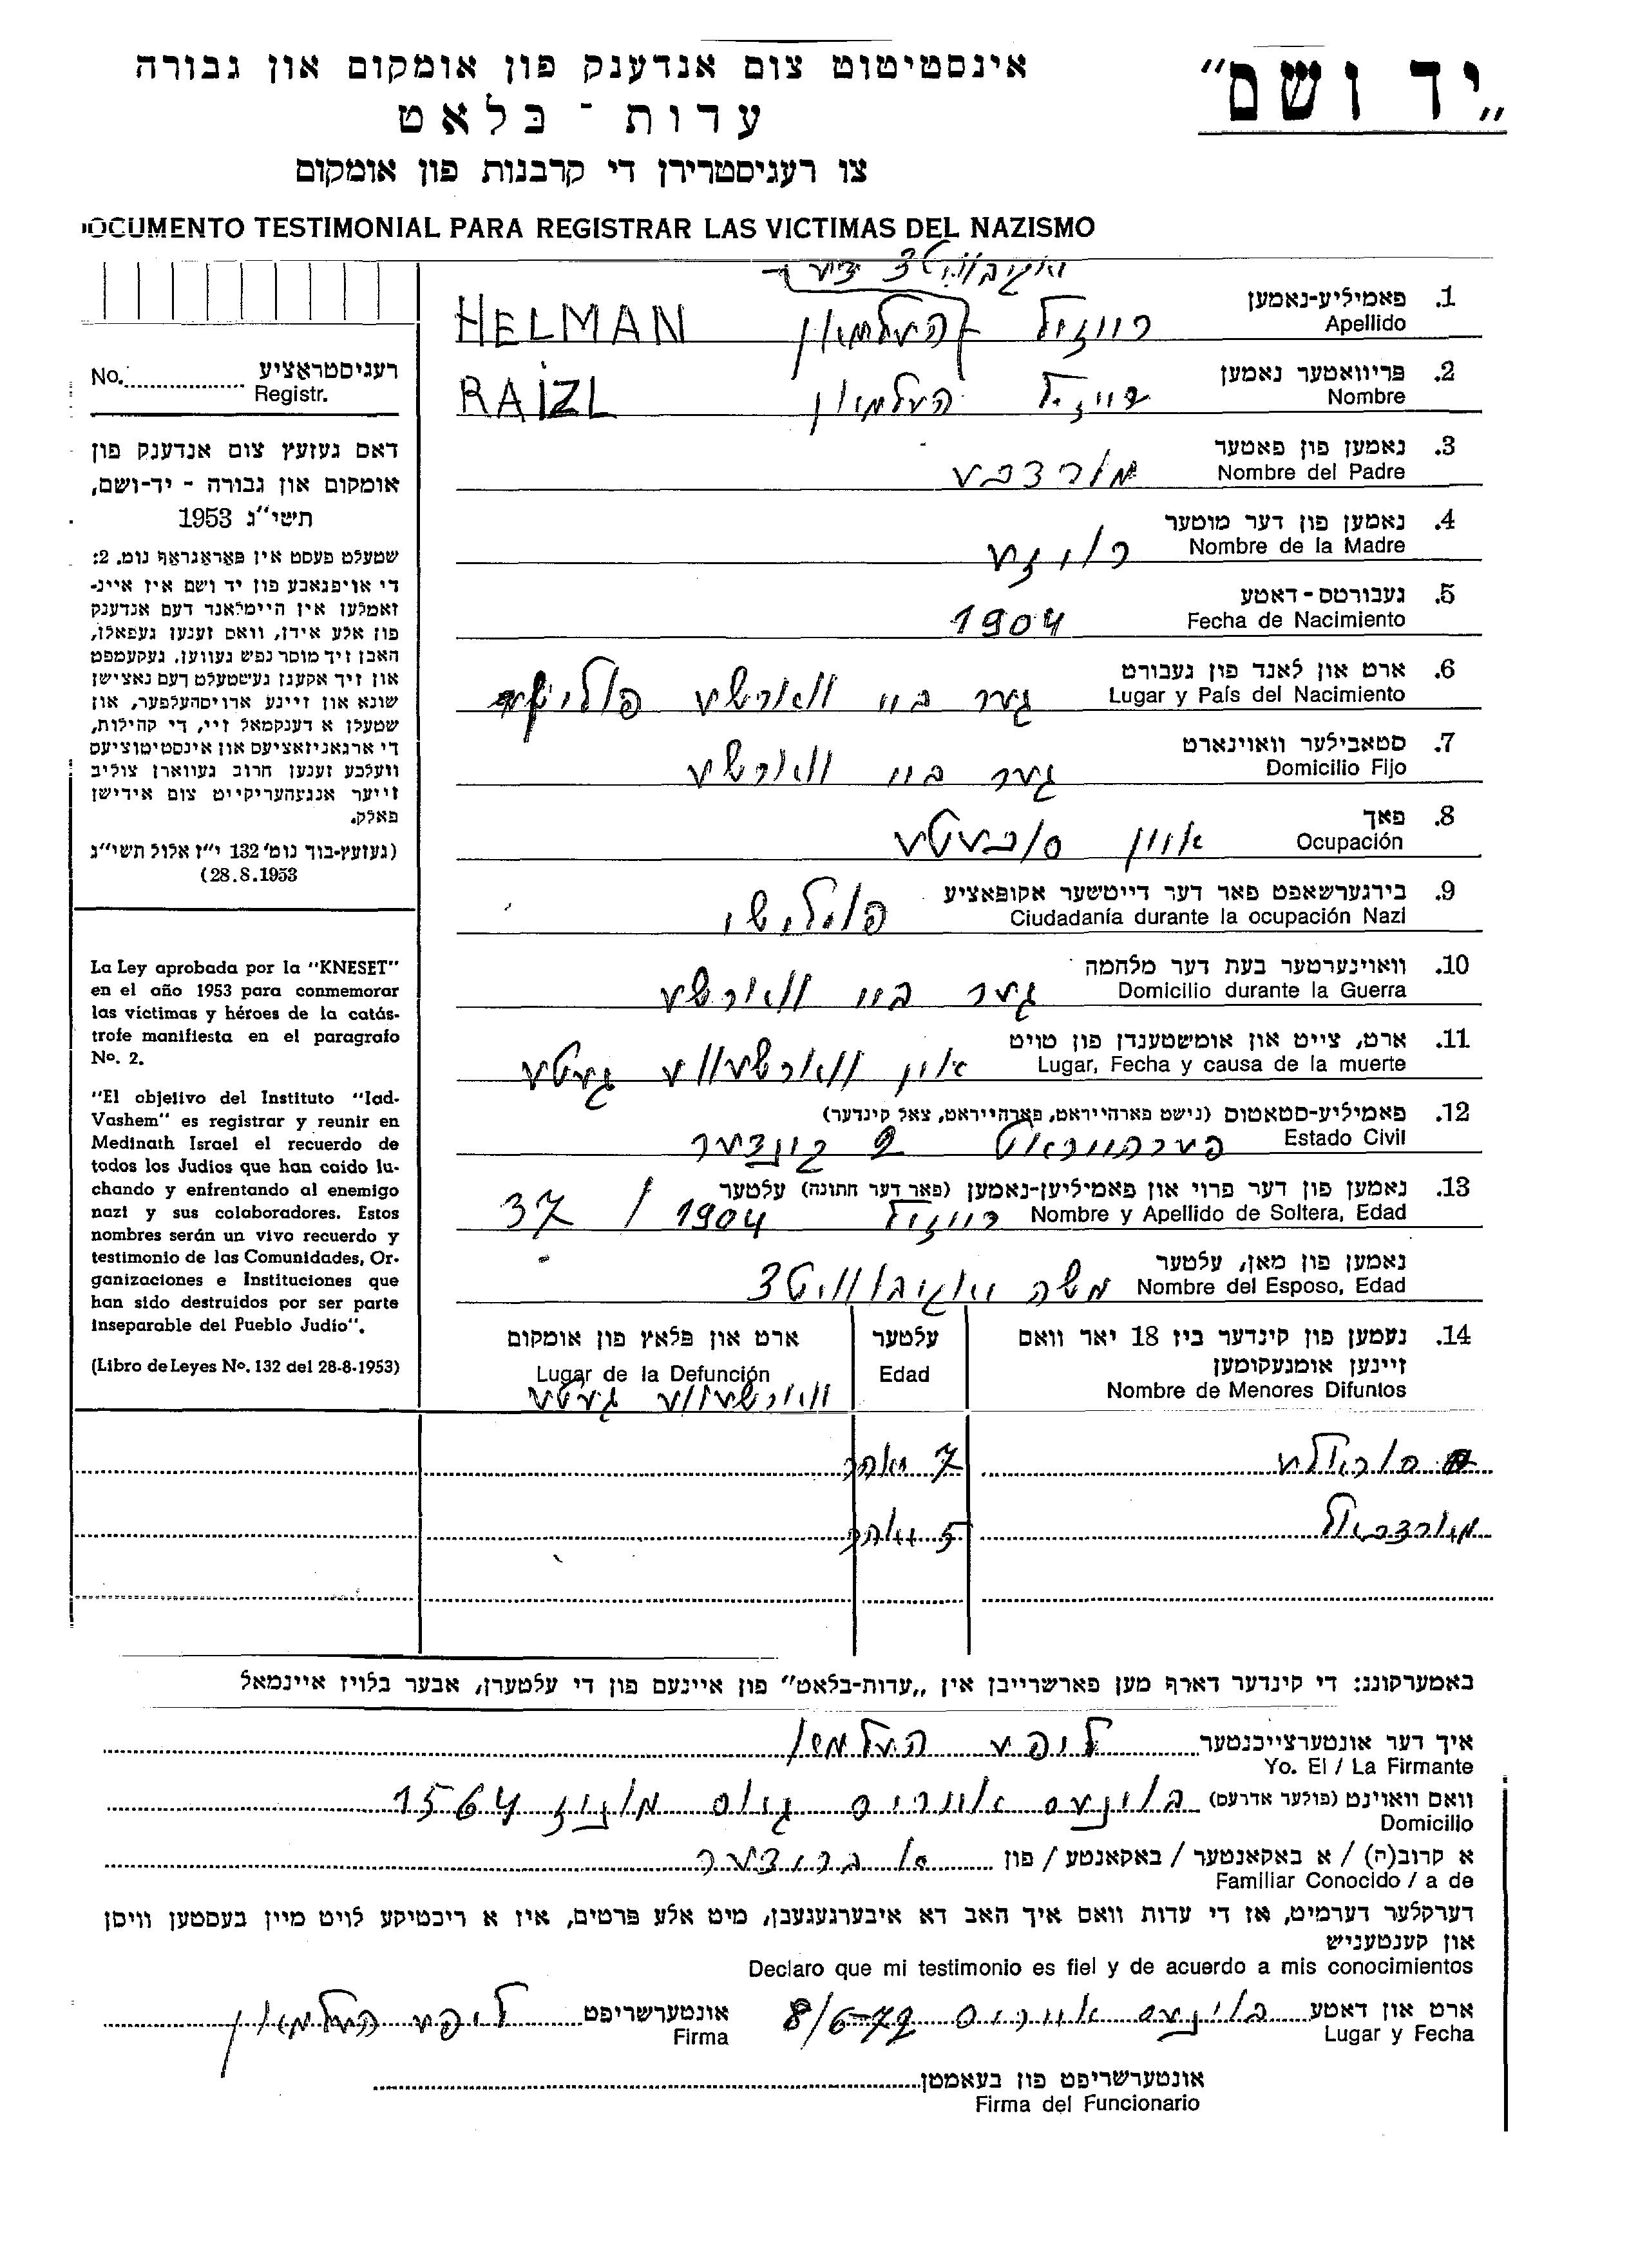 „יד ושם"
אינסטיטוט צום אנדענק פון אומקום און גבורה
עדות - בלאט
צו רעגיסטרירן די קרבנות פון אומקום
DOCUMENTO TESTIMONIAL PARA REGISTRAR LAS VICTIMAS DEL NAZISMO
1. פאמיליע-נאמען רייזל העלמאן HELMAN
Apellido
2. פריוואטער נאמען רייזל העלמאן RAIZL
Nombre
3. נאמען פון פאטער מורדכע
Nombre del Padre
4. נאמען פון דער מוטער רויזע
Nombre de la Madre
5. געבורטס-דאטע 1904
Fecha de Nacimiento
6. ארט און לאנד פון געבורט גער ביי ווארשע
Lugar y País del Nacimiento
7. סטאבילער וואוינארט גער ביי ווארשע
Domicilio Fijo
8. פאך
Ocupación
9. בירגערשאפט פאר דער דייטשער אקופאציע פוילישי
Ciudadanía durante la ocupación Nazi
10. וואוינערטער בעת דער מלחמה גער ביי ווארשע
Domicilio durante la Guerra
11. ארט, צייט און אומשטענדן פון טויט אין ווארשעווע געטע
Lugar, Fecha y causa de la muerte
12. פאמיליע-סטאטוס (נישט פארהייראט, פארהייראט, צאל קינדער)
Estado Civil פערהייראט 2 קינדער
13. נאמען פון דער פרוי און פאמיליען-נאמען (פאר דער חתונה) עלטער
Nombre y Apellido de Soltera, Edad רייזל 1904 / 37
נאמען פון מאן, עלטער
Nombre del Esposo, Edad משה
14. נעמען פון קינדער ביז 18 יאר וואס
זיינען אומגעקומען
Nombre de Menores Difuntos
עלטער
Edad
ארט און פלאץ פון אומקום
Lugar de la Defunción
ווארשעווע געטע
7 יאהר
מארדכאל 5 יאהר
No. רעגיסטראציע
Registr.
דאס געזעץ צום אנדענק פון
אומקום און גבורה - יד-ושם,
תשי"ג 1953
שטעלט פעסט אין פאראגראף נומ. 2:
די אויפגאבע פון יד ושם איז איינ-
זאמלען אין היימלאנד דעם אנדענק
פון אלע אידן, וואס זענען געפאלן,
האבן זיך מוסר נפש געווען, געקעמפט
און זיך אקעגן געשטעלט דעם נאצישן
שונא און זיינע ארויסהעלפער, און
שטעלן א דענקמאל זיי, די קהילות,
די ארגאניזאציעס און אינסטיטוציעס
וועלכע זענען חרוב געווארן צוליב
זייער אנגעהעריקייט צום אידישן
פאלק.
(געזעץ-בוך נומ' 132 י"ז אלול תשי"ג
28.8.1953)
La Ley aprobada por la "KNESET"
en el año 1953 para conmemorar
las víctimas y héroes de la catás-
trofe manifiesta en el paragrafo
No. 2.
"El objetivo del Instituto "Iad-
Vashem" es registrar y reunir en
Medinath Israel el recuerdo de
todos los Judíos que han caido lu-
chando y enfrentando al enemigo
nazi y sus colaboradores. Estos
nombres serán un vivo recuerdo y
testimonio de las Comunidades, Or-
ganizaciones e Instituciones que
han sido destruidos por ser parte
inseparable del Pueblo Judío".
(Libro de Leyes No. 132 del 28-8-1953)
באמערקונג: די קינדער דארף מען פארשרייבן אין „עדות-בלאט" פון איינעם פון די עלטערן, אבער בלויז איינמאל
איך דער אונטערצייכנטער ליפע העלמאן
Yo. El / La Firmante
וואס וואוינט (פולער אדרעס) בוענעס איירוס 1564
Domicilio
א קרוב(ה) / א באקאנטער / באקאנטע / פון א ברודער
Familiar Conocido / a de
דערקלער דערמיט, אז די עדות וואס איך האב דא איבערגעגעבן, מיט אלע פרטים, איז א ריכטיקע לויט מיין בעסטען וויסן
און קענטעניש
Declaro que mi testimonio es fiel y de acuerdo a mis conocimientos
ארט און דאטע בוענעס איירוס 8/6-72 אונטערשריפט ליפע העלמאן
Lugar y Fecha Firma
אונטערשריפט פון בעאמטן
Firma del Funcionario